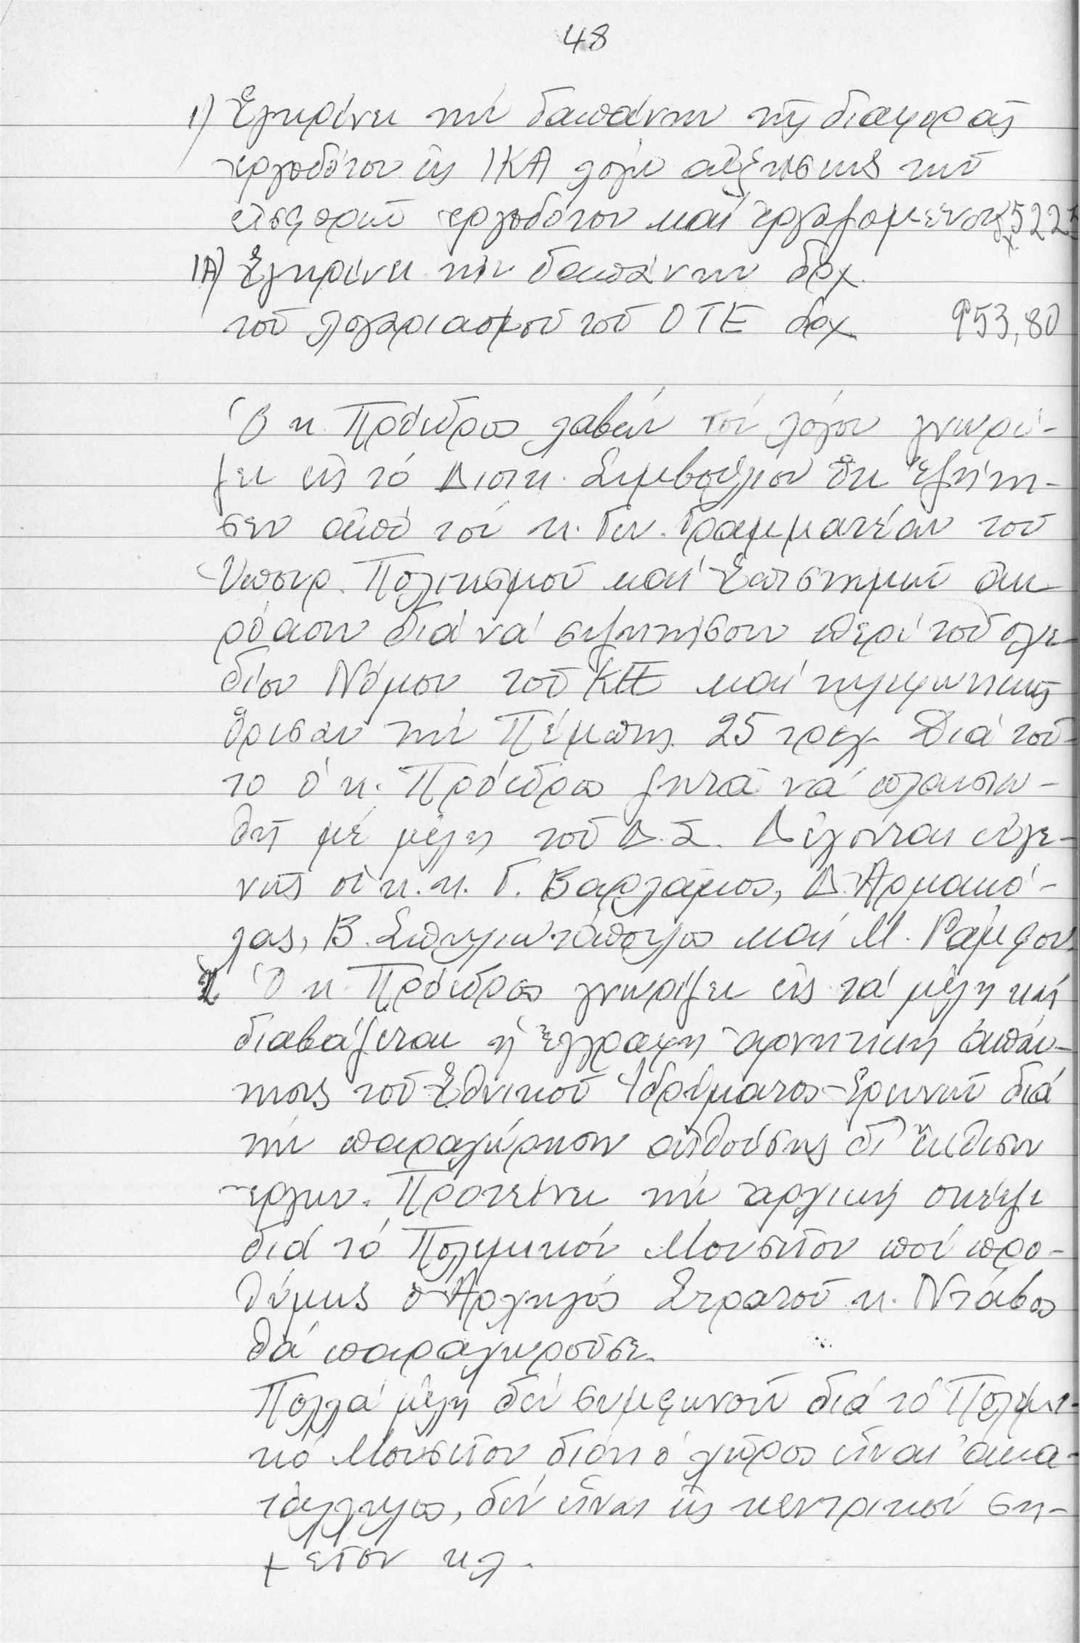 48
1) Ἐγκρίνει τήν δαπάνην τῆς διαφορᾶς
ἐργοδότου εἰς ΙΚΑ λόγῳ αὐξήσεως τῶν
εἰσφορῶν ἐργοδότου καί ἐργαζομένου 522
1Α) Ἐγκρίνει τήν δαπάνην δρχ.
τοῦ λογαριασμοῦ τοῦ ΟΤΕ δρχ 953,80
Ὁ κ. Πρόεδρος λαβών τόν λόγον γνωρί-
ζει εἰς τό Διοικ. Συμβούλιον ὅτι ἐζήτη-
σεν ἀπό τόν κ. Γεν. Γραμματέαν τοῦ
Ὑπουρ. Πολιτισμοῦ καί Ἐπιστημῶν ἀκ
ρόασιν διά νά συζητήσουν περί τοῦ σχε
δίου Νόμου τοῦ ΚΕΕ καί τηλεφωνικῶς
ὅρισαν τήν Πέμπτη 25 τρεχ. Διά τοῦ-
το ὁ κ. Πρόεδρος ζητᾶ νά πλαισιω-
θῆ μέ μέλη τοῦ Δ.Σ. Δέχονται εὐγε-
νῶς οἱ κ.κ. Γ. Βαρλάμος, Δ. Ἀρμακό-
λας, Β. καί Μ. Ράμφου
Ὁ κ. Πρόεδρος γνωρίζει εἰς τά μέλη καί
διαβάζεται ἡ ἔγγραφη ἀρνητική ἀπάν-
τησις τοῦ Ἐθνικοῦ Ἱδρύματος Ἐρευνῶν διά
τήν παραχώρησιν αἰθούσης δι' ἔκθεσιν
ἔργων. Προτείνει τήν ἀρχική σκέψι
διά τό Πολεμικόν Μουσεῖον πού προ-
θύμως ὁ Ἀρχηγός Στρατοῦ κ. Ντάβος
θά παραχωροῦσε.
Πολλά μέλη δέν συμφωνοῦν διά τό Πολεμι-
κό Μουσεῖον διότι ὁ χῶρος εἶναι ἀκα-
τάλληλος, δέν εἶναι εἰς κεντρικόν ση-
μεῖον κλ.